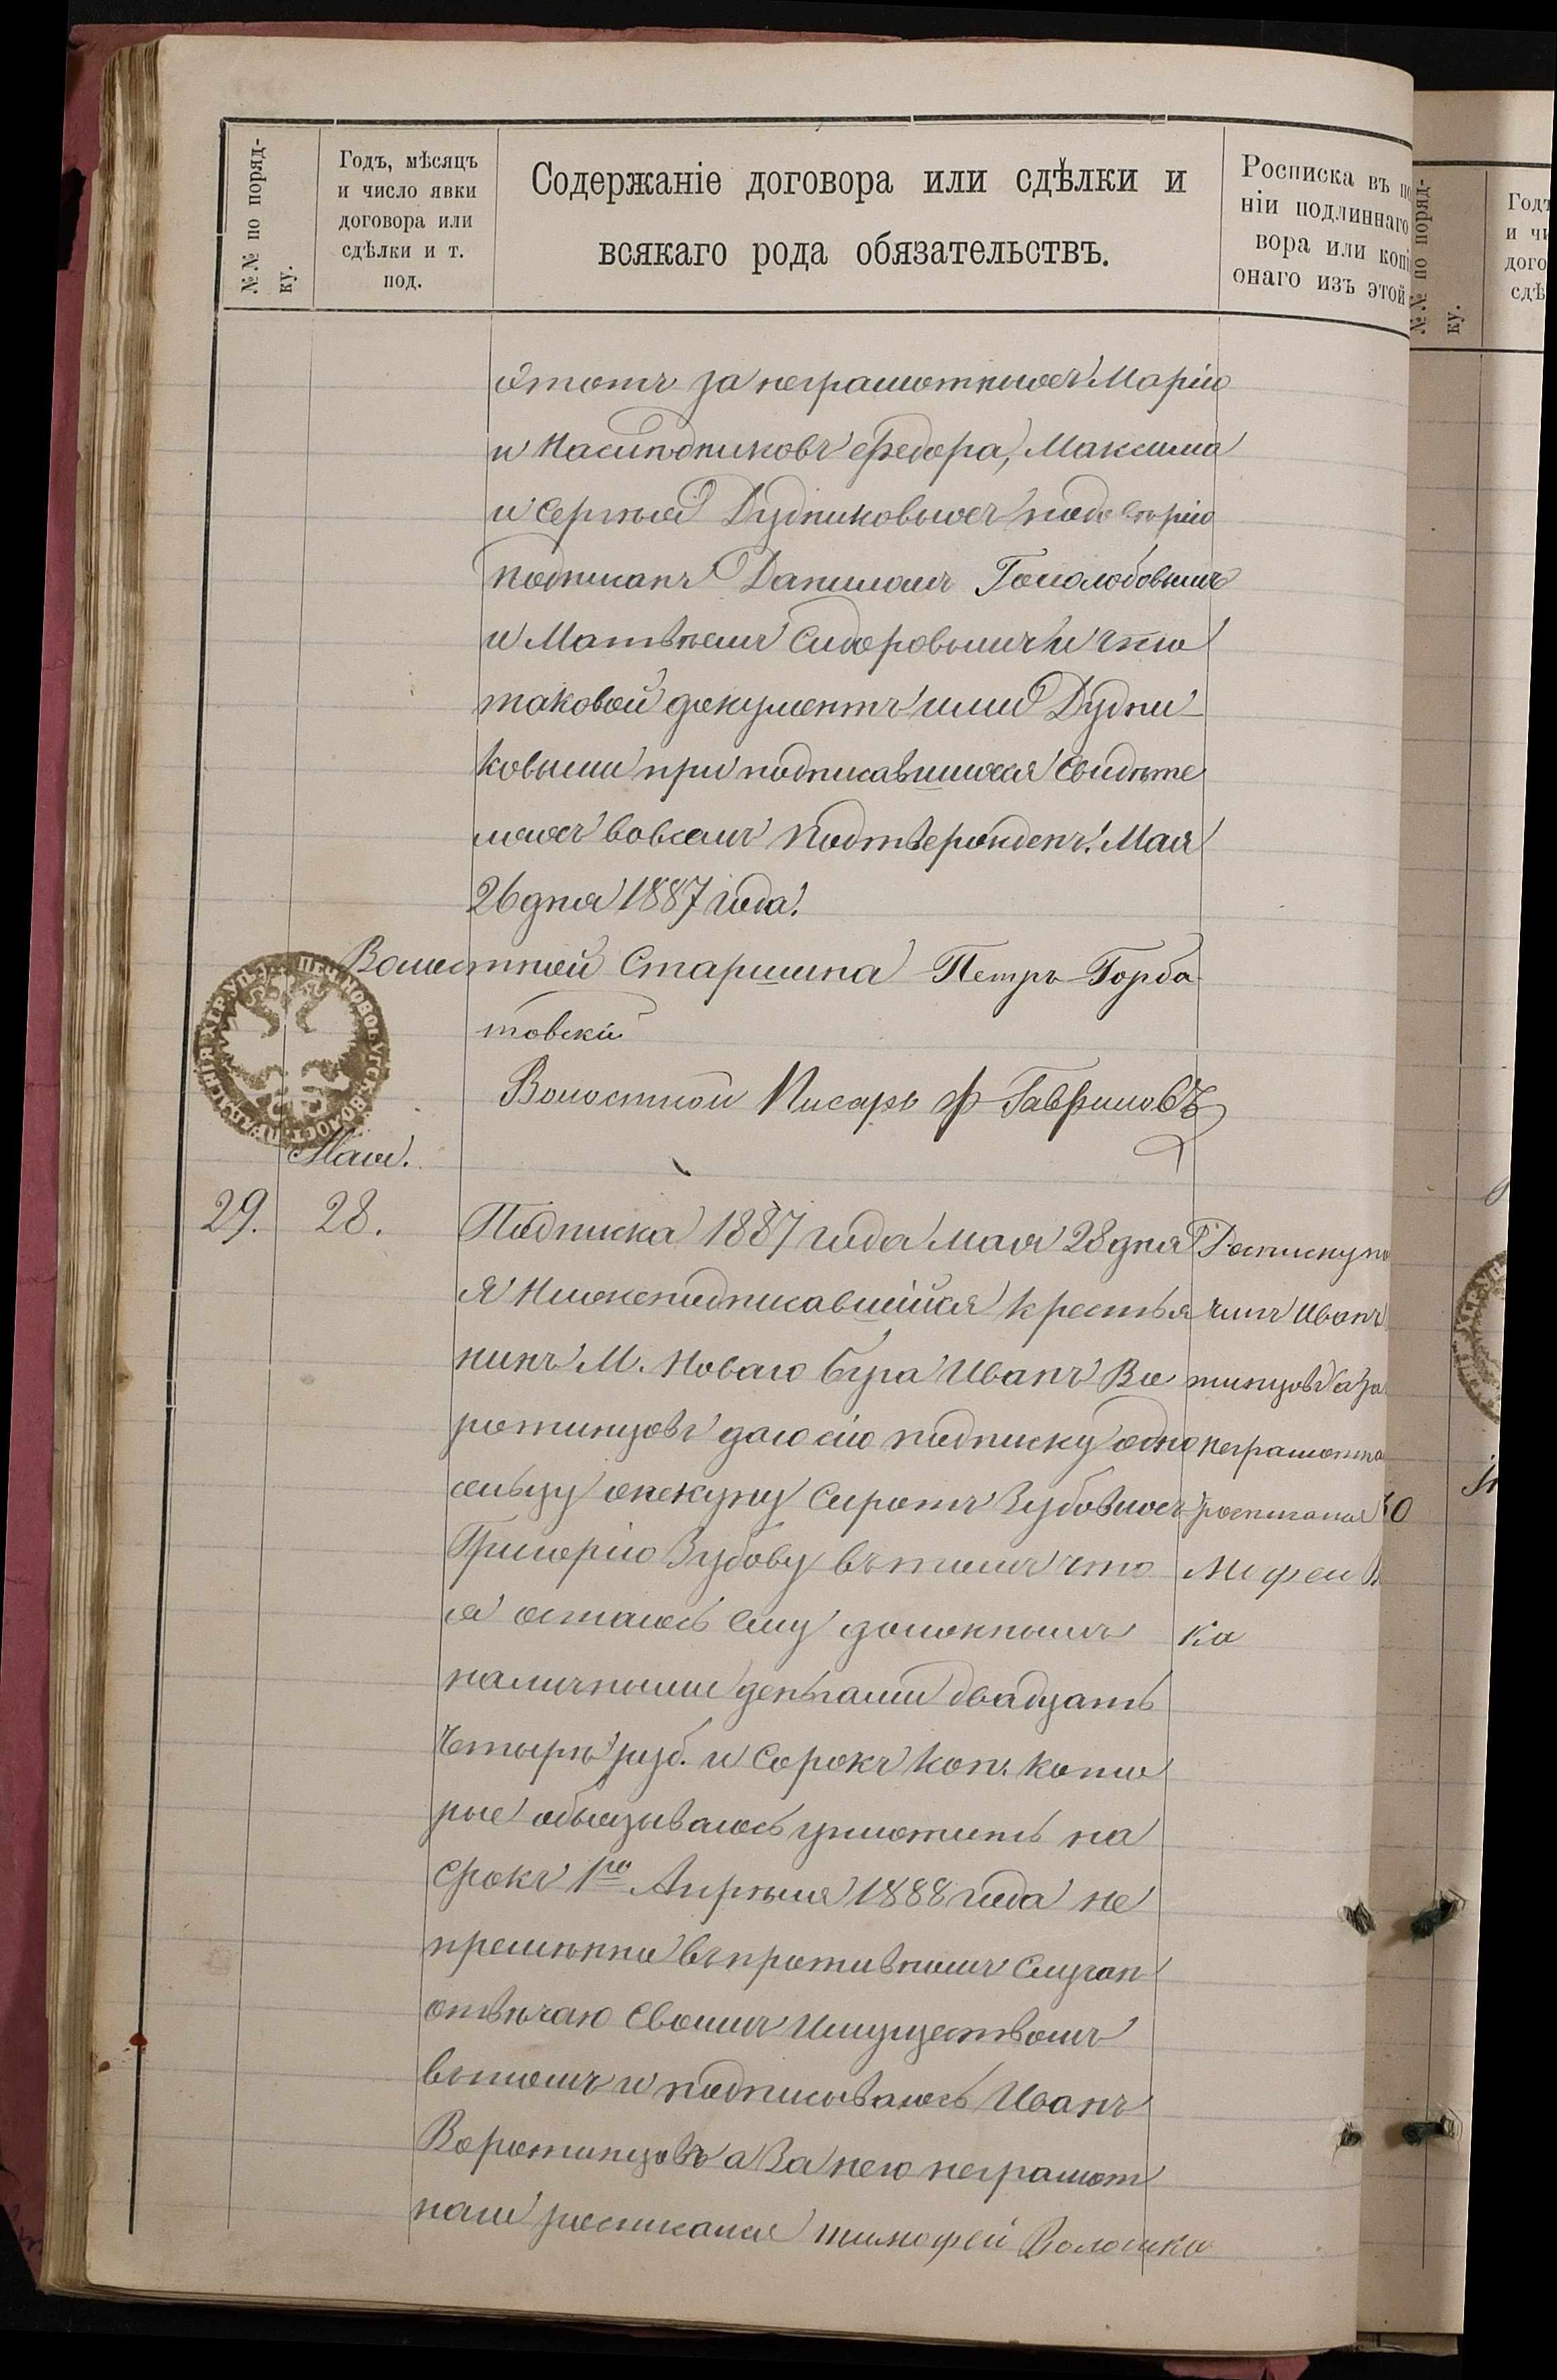 №№ по поряд-
ку.
Годъ, мѣсяцъ
и число явки
договора или
сдѣлки и т.
под.
Содержаніе договора или сдѣлки и
всякаго рода обязательствъ.
Росписка въ по
ніи подлиннаго
вора или копі
онаго изъ этой
№№ по поряд-
ку.
Годъ
и чи
дого
сдѣ
этотъ за неграмотныхъ Марію
и Наслѣдниковъ Федора, Максима
и Сергѣя Дудниковыхъ
подписанъ Даниломъ Гололобовымъ
и Матвѣемъ Сидоровымъ и что
таковой документъ ими Дудни
ковыми при подписавшихся свидѣте
ляхъ вовсемъ подтвержденъ. Мая
26 дня 1887 года.
Волостной Старшина Петръ Горба
товскій
Волостной Писарь Ф Гавриловъ
Мая.
29. 28.
Подписка 1887 года мая 28 дня
Я Нижеподписавшійся крестья
нинъ М. Новаго Буга Иванъ Во
ротинцовъ даю сію подписку одно
сельцу опекуну Сиротъ Зубовыхъ
Григорію Зубову въ томъ что
я остаюсь ему должнымъ
наличными деньгами двадцать
четырѣ руб. и сорокъ коп. кото
рые обязываюсь уплотить на
срокъ 1го Апрѣля 1888 года не
премѣнно въ противномъ случаѣ
отвѣчаю своимъ Имуществомъ
вътомъ и подписываюсь Иванъ
Воротинцовъ а За него неграмот
наго росписался тимофей Волошко
Росписку по
чилъ Иванъ
тинцовъ а за
неграмотна
росписался
Мофей В
ко